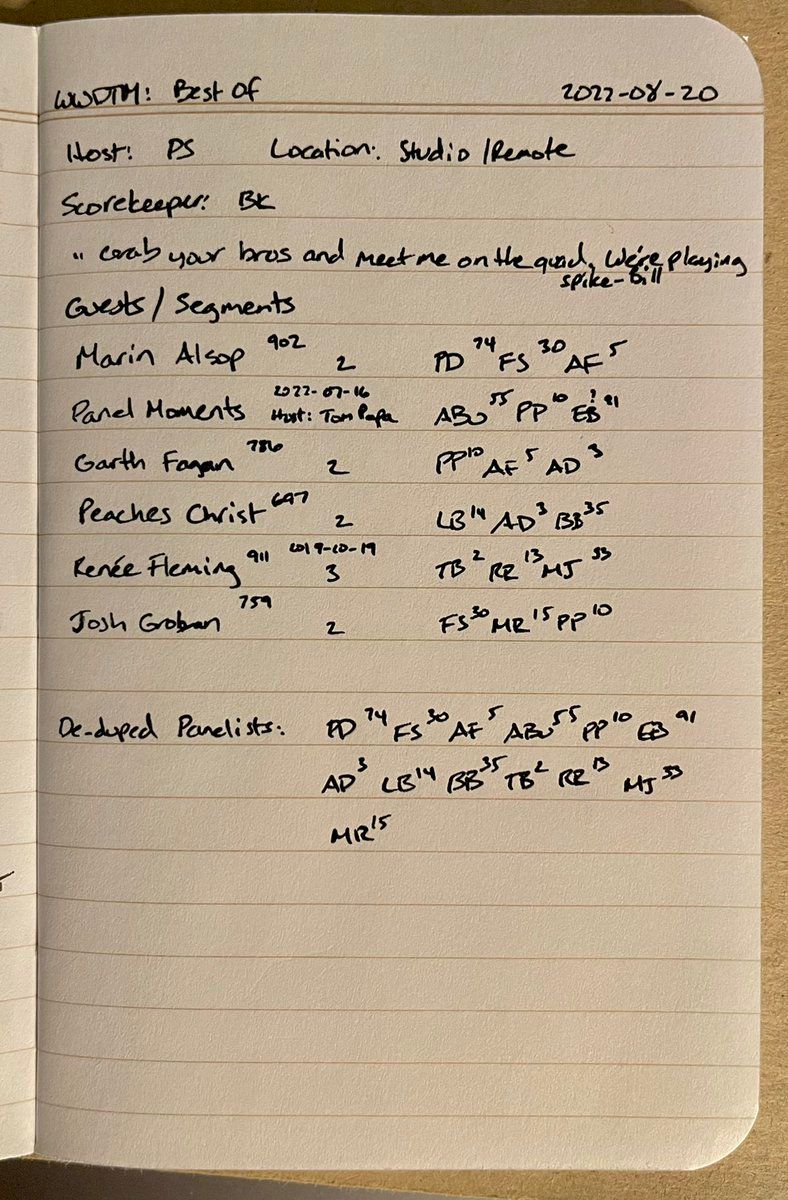 WWDTM: Best Of 2022-08-20
Host: PS Location: Studio/Remote
Scorekeeper: BK
" Grab your bros and meet me on the quad. We're playing
spike-Bill
Guests/Segments
Marin Alsop 902 2 PD 74 FS 30 AF 5
Panel Moments 2022-07-16 Host: Tom Papa ABU 55 PP 10 EB ? 91
Garth Fagan 786 2 PP 10 AF 5 AD 3
Peaches Christ 647 2 LB 14 AD 3 BB 35
Renée Fleming 911 2019-10-19 3 TB 2 RR 13 MJ 53
Josh Groban 759 2 FS 30 MR 15 PP 10
De-duped Panelists: PD 74 FS 30 AF 5 ABU 55 PP 10 EB 91
AD 3 LB 14 BB 35 TB 2 RR 13 MJ 53
MR 15